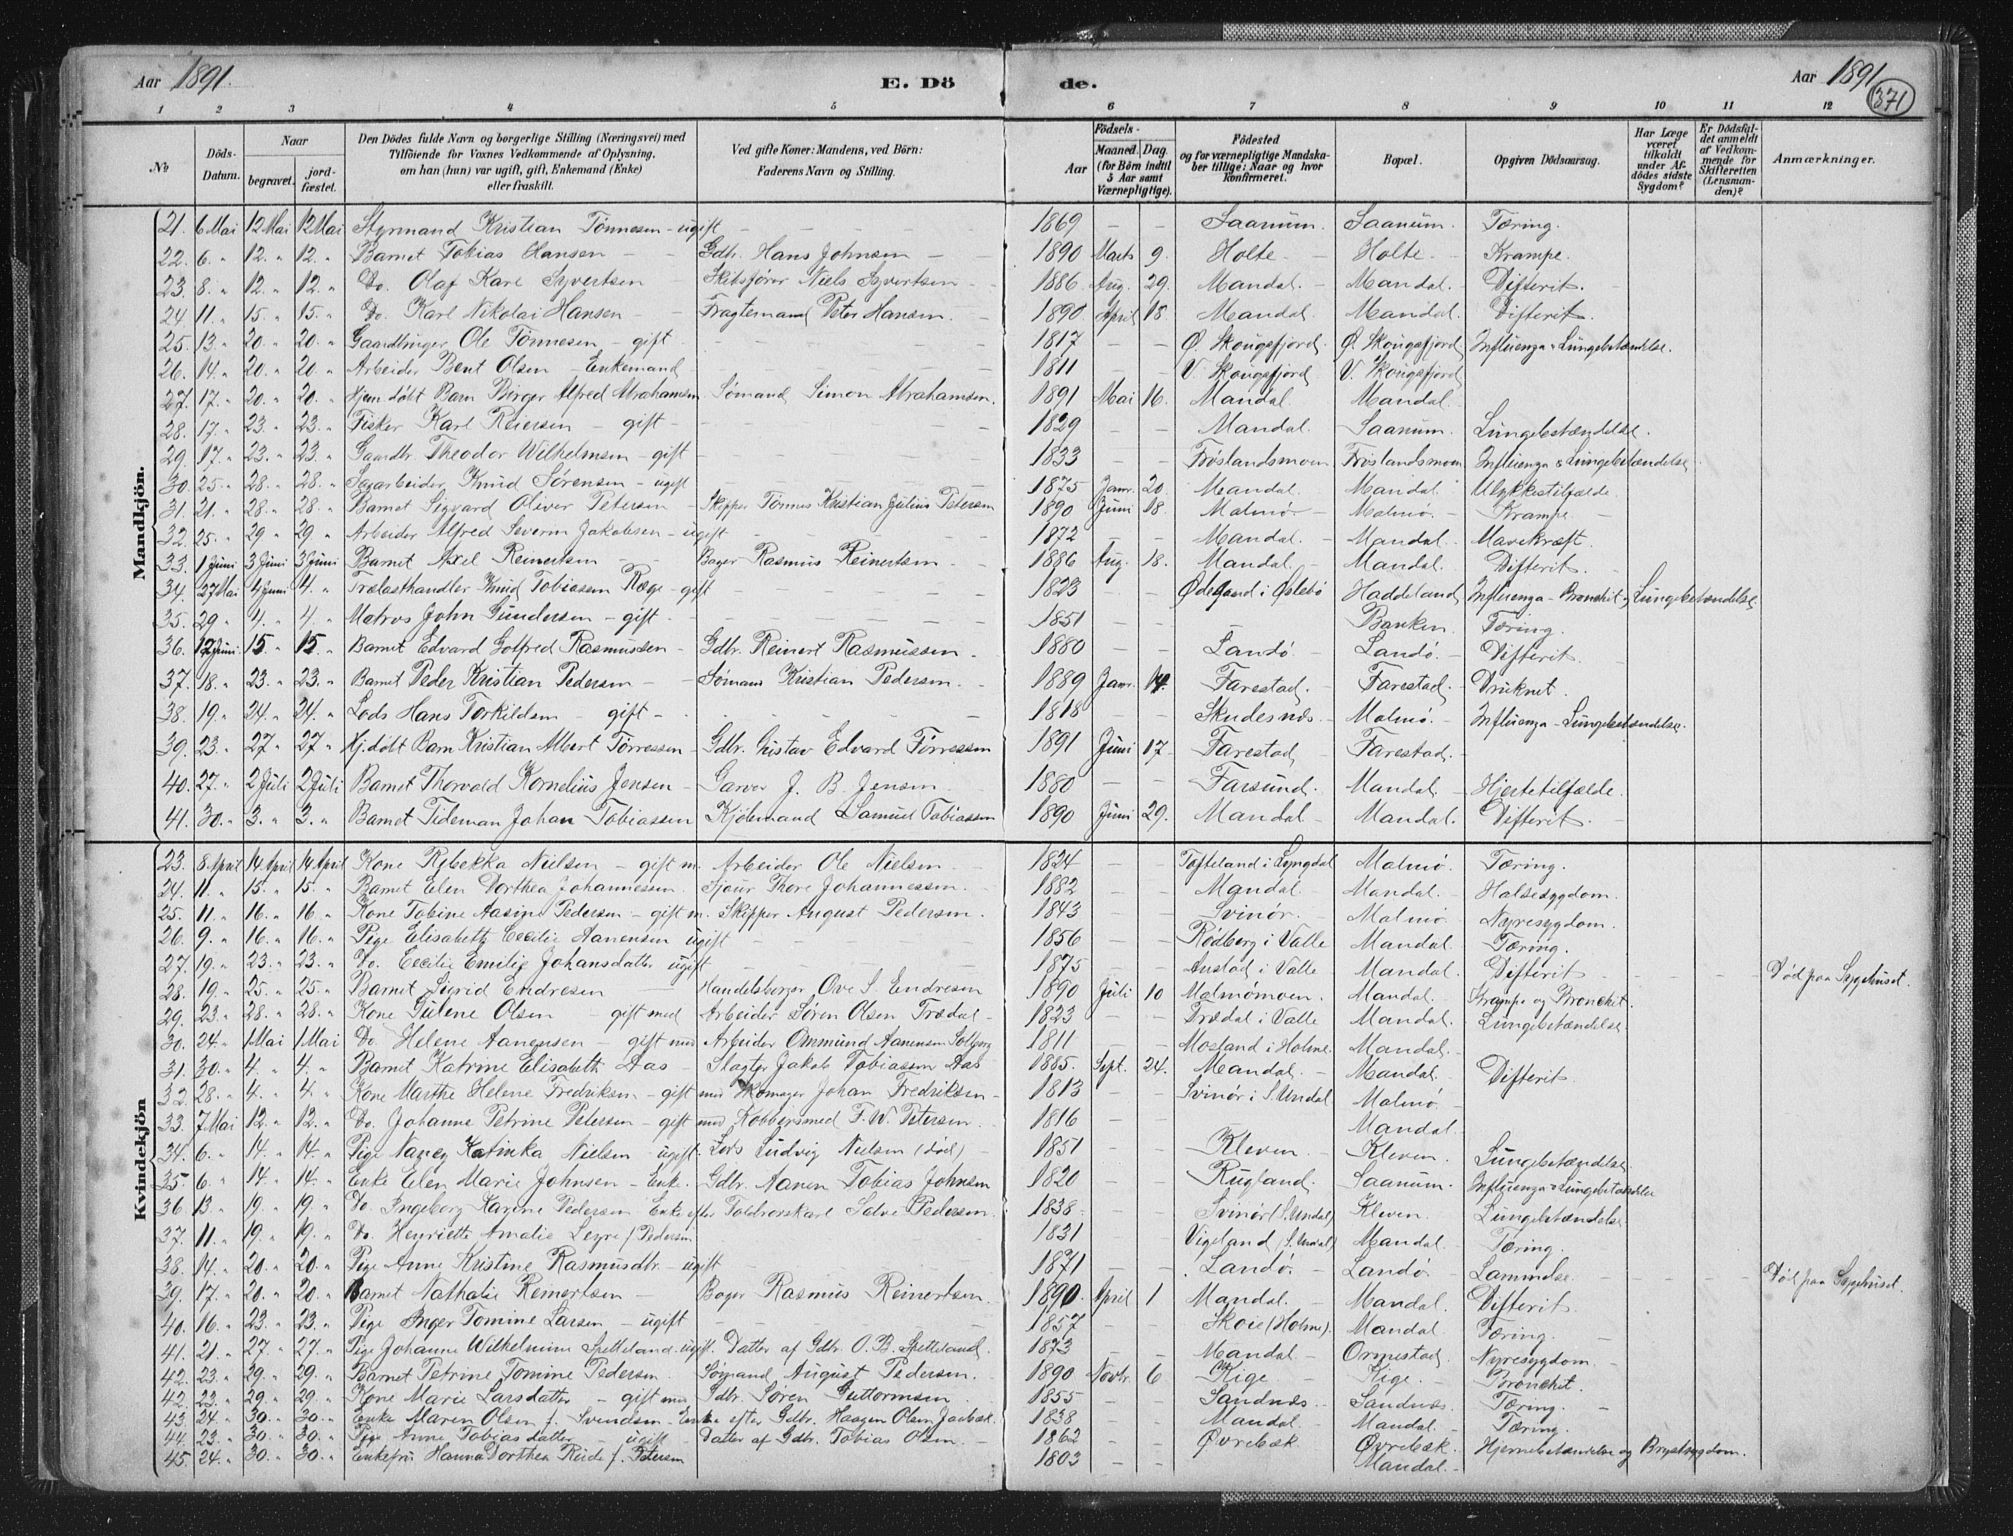 Aar 1891. E. Dö de. Aar 1891
371
1 2 3 4 5 6 7 8 9 10 11 12
No Döds-Datum. Naar begravet. jord-fæstet. Den Dödes fulde Navn og borgerlige Stilling (Næringsvei) med Tilföiende for Voxnes Vedkommende af Oplysning, om han (hun) var ugift, gift, Enkemand (Enke) eller fraskilt. Ved gifte Koner: Mandens, ved Börn: Faderens Navn og Stilling. Födsels- Aar Maaned. Dag. (for Börn indtil 5 Aar samt Værnepligtige). Födested og for værnepligtige Mandska-ber tillige: Naar og hvor konfirmeret. Bopæl. Opgiven Dödsaarsag. Har Læge været tilkaldt under Af-dödes sidste Sygdom? Er Dödsfal-det anmeldt af Vedkom-mende for Skifteretten (Lensman-den)? Anmærkninger.
Mandkjön.
21. 6 Mai 12 Mai 12 Mai Styrmand Kristian Tönnesen - ugift - 1869 - - Saanum. Saanum. Tæring.
22. 6. " 12. " 12. " Barnet Tobias Hansen - Gdbr. Hans Johnsen - 1890 Marts 9. Holte - Holte - Krampe.
23. 8. " 12. " 12. " Do. Olaf Karl Syvertsen - Skibsförer Niels Syvertsen - 1886 Aug. 29. Mandal. - Mandal. - Difterit.
24. 11. " 15. " 15. " Do. Karl Nikolai Hansen - Fragtemand Peter Hansen. - 1890 April 18. Mandal. Mandal. Difterit.
25. 13. " 20. " 20. " Gaardbruger Ole Tönnesen - gift - 1817 - - Ö. Skougsfjord. Ö. Skougsfjord. Influenza & Lungebetændelse.
26. 14. " 20. " 20. " Arbeider Bent Olsen - Enkemand - 1811 - - V. Skougsfjord V. Skougsfjord
27. 17. " 20. " 20. " Hjemdöbt Barn Birger Alfred Abrahamsen Sömand Simon Abrahamsen. 1891 Mai 16. Mandal. Mandal.
28. 17. " 23. " 23. " Fisker Karl Reiersen - gift - 1829 - - Mandal. Saanum. Lungebetændelse.
29. 17. " 23. " 23. " Gaardbr. Theodor Wilhelmsen - gift - 1833 - - Fröslandsmoen Fröslandsmoen Influenza & Lungebetændelse
30. 25. " 28. " 28. " Sagarbeider Knud Sörensen - ugift - 1875 Janr. 20. Mandal. Mandal. Ulykkestilfælde.
31. 21. " 28. " 28. " Barnet Sigvard Oliver Petersen - Skipper Tönnes Kristian Julius Petersen 1890 Juni 18. Malmö. - Malmö. - Krampe -
32. 25. " 29 " 29. " Arbeider Alfred Severin Jakobsen - ugift - 1872 - - Mandal. - Mandal. Mavekræft.
33. 1 Juni 3 Juni 3 Juni Barnet Axel Reinertsen - Bager Rasmus Reinertsen. - 1886 Aug. 18. Mandal. Mandal. Difterit.
34. 27 Mai 4 Juni 4. " Trælasthandler Knud Tobiassen Ræge - gift - 1823 - - Ödegaard i Öslebö Haddeland Influenza - Bronchit & Lungebetændelse
35. 29 " 4. " 4. " Matros John Gundersen - gift. - 1851 - - Banken. Tæring.
36. 12 Juni. 15. " 15. " Barnet Edvard Gotfred Rasmussen - Gdbr. Reinert Rasmussen. - 1880 - - Landö. - Landö. - Difterit.
37. 18. " 23. " 23. " Barnet Peder Kristian Pedersen - Sömand Kristian Pedersen. - 1889 Janr. 14. Farestad. - Farestad. - Druknet.
38. 19. " 24. " 24. " Lods Hans Torkildsen - gift - 1818 - - Skudesnæs. - Malmö. - Influenza - Lungebetændelse.
39. 23. " 27. " 27. " Hjdöbt Barn Kristian Albert Törressen - Gdbr. Gustav Edvard Törressen 1891 Juni 17. Farestad. Farestad.
40. 27. " 2 Juli 2 Juli Barnet Thorvald Kornelius Jensen - Garver J. B. Jensen. - 1880 - - Farsund. Mandal. Hjertetilfælde.
41. 30. " 3. " 3. " Barnet Tideman Johan Tobiassen Kjölemand Samuel Tobiassen 1890 Juni 29. Mandal - Mandal. Difterit. -
Kvindekjön
23. 8 April 14 April 14 April Kone Rebekka Nielsen - gift m. Arbeider Ole Nielsen 1824 - - Tofteland i Lyngdal Malmö. Tæring.
24. 11. " 15. " 15. " Barnet Elen Dorthea Johannessen. Tjour Thore Johannessen. - 1882 - - Mandal. Mandal. - Halssygdom.
25. 11. " 16. " 16. " Kone Tobine Aasine Pedersen - gift m. Skipper August Pedersen. 1843 - - Svinör. - Malmö. Nyresygdom.
26. 9. " 16. " 16. " Pige Elisabeth Cecilie Aanensen ugift - 1856 - - Rödberg i Valle Mandal. Tæring.
27. 19. " 23. " 23. " Do. Cecilie Emilie Johansdatter ugift - 1875 - - Austad i Valle Mandal. Difterit - Död paa Sygehuset.
28. 19. " 25. " 25. " Barnet Sigrid Endresen Handelsborger Ove S. Endresen 1890 Juli 10 Malmömoen. Mandal. - Krampe og Bronchit.
29. 23. " 28. " 28. " Kone Gulene Olsen - gift med Arbeider Sören Olsen Trædal - 1823 - - Trædal i Valle Mandal. Lungebetændelse.
30. 24. " 1 Mai 1 Mai Do. Helene Aanensen - gift med Arbeider Ommund Aanensen Solberg 1811 - - Mosland i Holme Mandal. -
31. 30. " 4. " 4. " Barnet Katrine Elisabeth Aas - Slagter Jakob Tobiassen Aas - 1885. Sept. 24. Mandal. - Mandal. Difterit.
32. 28. " 4. " 4. " Kone Marthe Helene Fredriksen - gift med Skomager Johan Fredriksen - 1813 - - Svinör i S. Undal Malmö. -
33. 7 Mai 12. " 12. " Do. Johanne Petrine Petersen - gift med Kobbersmed F. W. Petersen. 1816 - - Mandal. -
34. 6. " 14. " 14. " Pige Nancy Katinka Nielsen - ugift. Lods Ludvig Nielsen (död) - 1851 - - Kleven. - Kleven. Lungebetændelse.
35. 6. " 14. " 14. " Enke Elen Marie Johnsen - Enk. - Gdbr. Aanen Tobias Johnsen 1820 - - Rugland. Saanum. Influenza & Lungebetændelse
36. 13. " 19. " 19. " Do. Ingeborg Karine Pedersen Enke efter Toldrosskarl Salve Pedersen. 1838 - - Svinör (S. Undal) Kleven. Lungebetændelse
37. 11. " 19. " 19. " Do. Henriette Amalie Leyre f. Pedersen 1831 - - Vigeland (S. Undal) Mandal. Tæring.
38. 14. " 20. " 20. " Pige Anne Kristine Rasmusdtr. - ugift - 1871 - - Landö. - Landö - Lammelse. - Död paa Sygehuset.
39. 17. " 20. " 20. " Barnet Nathalie Reinertsen - Bager Rasmus Reinertsen. 1890. April 1 Mandal. - Mandal. Difterit.
40. 16. " 23. " 23. " Pige Inger Tomine Larsen - ugift - 1857 - - Skoie (Holme). Mandal. Tæring. -
41. 21. " 27. " 27. " Pige Johanne Wilhelmine Spetteland. ugift. Datter af Gdbr. O. B. Spetteland. 1873 - - Mandal. - Ormestad. Nyresygdom. -
42. 23. " 29. " 29. " Barnet Petrine Tomine Pedersen. Sömand August Pedersen. - 1890 Novbr. 6 Kige - Kige. - Bronchit.
42. 23. " 29. " 29. " Kone Marie Larsdatter - gift med Gdbr. Sören Guttormsen 1855 - - Sandnæs. Sandnæs. Tæring. -
43. 24. " 30. " 30. " Enke Maren Olsen f. Svendsen - Enke efter Gdbr. Haagen Olsen Jaabæk. 1838 - - Mandal. - Mandal. Tæring. -
44. 23. " 30. " 30. " Pige Anne Tobiasdatter - ugift - Datter af Gdbr. Tobias Olsen. - 1862 - - Övrebæk. Övrebæk. Hjernebetændelse og Brystsygdom.
45. 24. " 30. " 30. " Enkefru Hanna Dorthea Reide f. Petersen 1803 - - Mandal. -